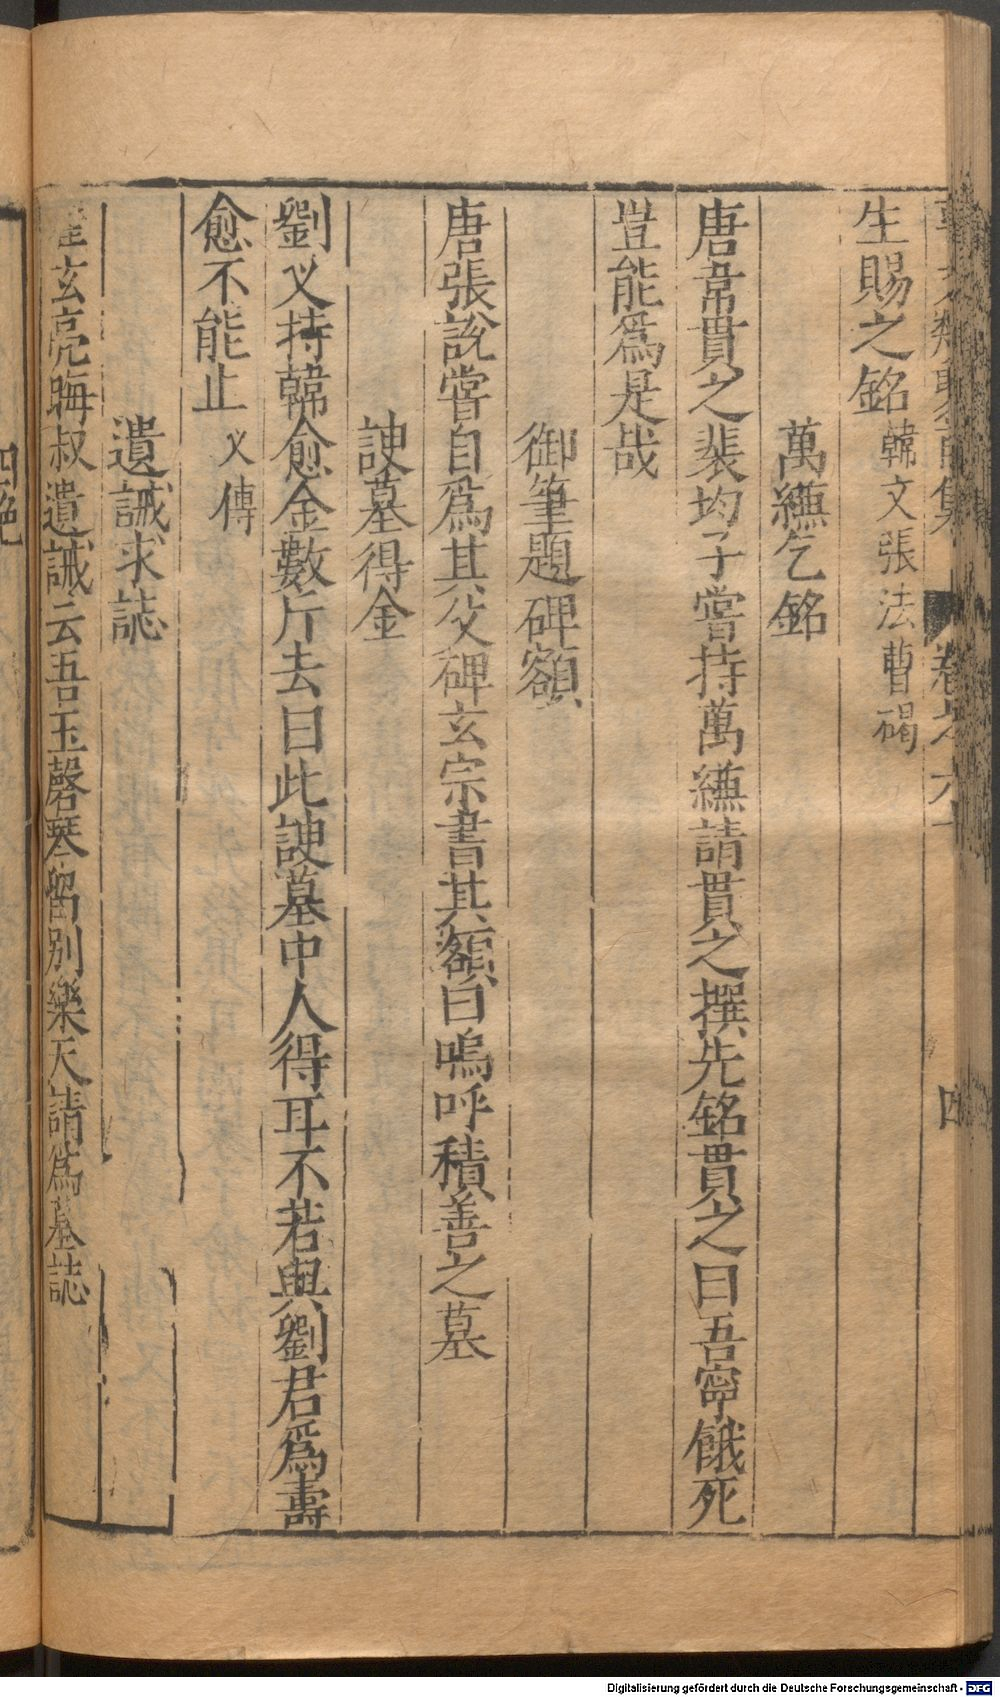 生賜之銘韓文張法曹碣
萬縑乞銘
唐韋貫之裴均子嘗持萬縑請貫之撰先銘貫之曰吾寧餓死
豈能爲是哉
御筆題碑額
唐張說嘗自爲其父碑玄宗書其額曰嗚呼積善之墓
諛墓得金
劉乂持韓愈金數斤去曰此諛墓中人得耳不若與劉君爲壽
愈不能止乂傳
遺誡求誌
崔玄亮晦叔遺誡云吾玉磬琴留別樂天請爲墓誌
集 卷之六十
四
Digitalisierung gefördert durch die Deutsche Forschungsgemeinschaft - DFG